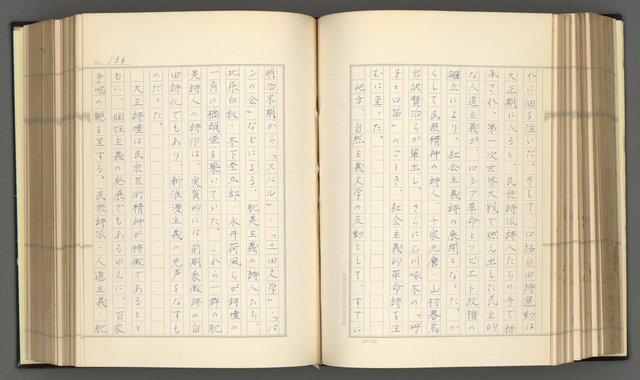 れに油を注いだ。そして、口語自由詩運動は
大正期に入ると、民衆詩派詩人たちの手で継
承され、第一次世界大戦で燃え出した民主的
な人道主義が、ロシア革命とソビエト政権の
確立により、社会主義詩の展開となった。か
くして民衆精神の詩人、千家元麿・山村暮鳥・
宮沢賢治らが輩出し、さらに石川啄木の「呼
子と口笛」のごとき、社会主義的革命詩を生
むに至った。
他方、自然主義文学の反動として、すでに
No. 136
明治末期から「スバル」・「三田文学」・「パ
ンの会」などによる、耽美主義の詩人たち、
北原白秋・木下杢太郎・永井荷風らが詩壇の
一角に橋頭堡を築いていた。これら一群の耽
美詩人の詩作は、実質的には前期象徴詩の自
由詩化でもあり、新浪漫主義の先声をなすも
のだった。
大正詩壇は民衆芸術精神が特徴であるとと
もに、個性主義の発展でもあるゆえに、百家
争鳴の観を呈する。民衆詩派・人道主義・耽